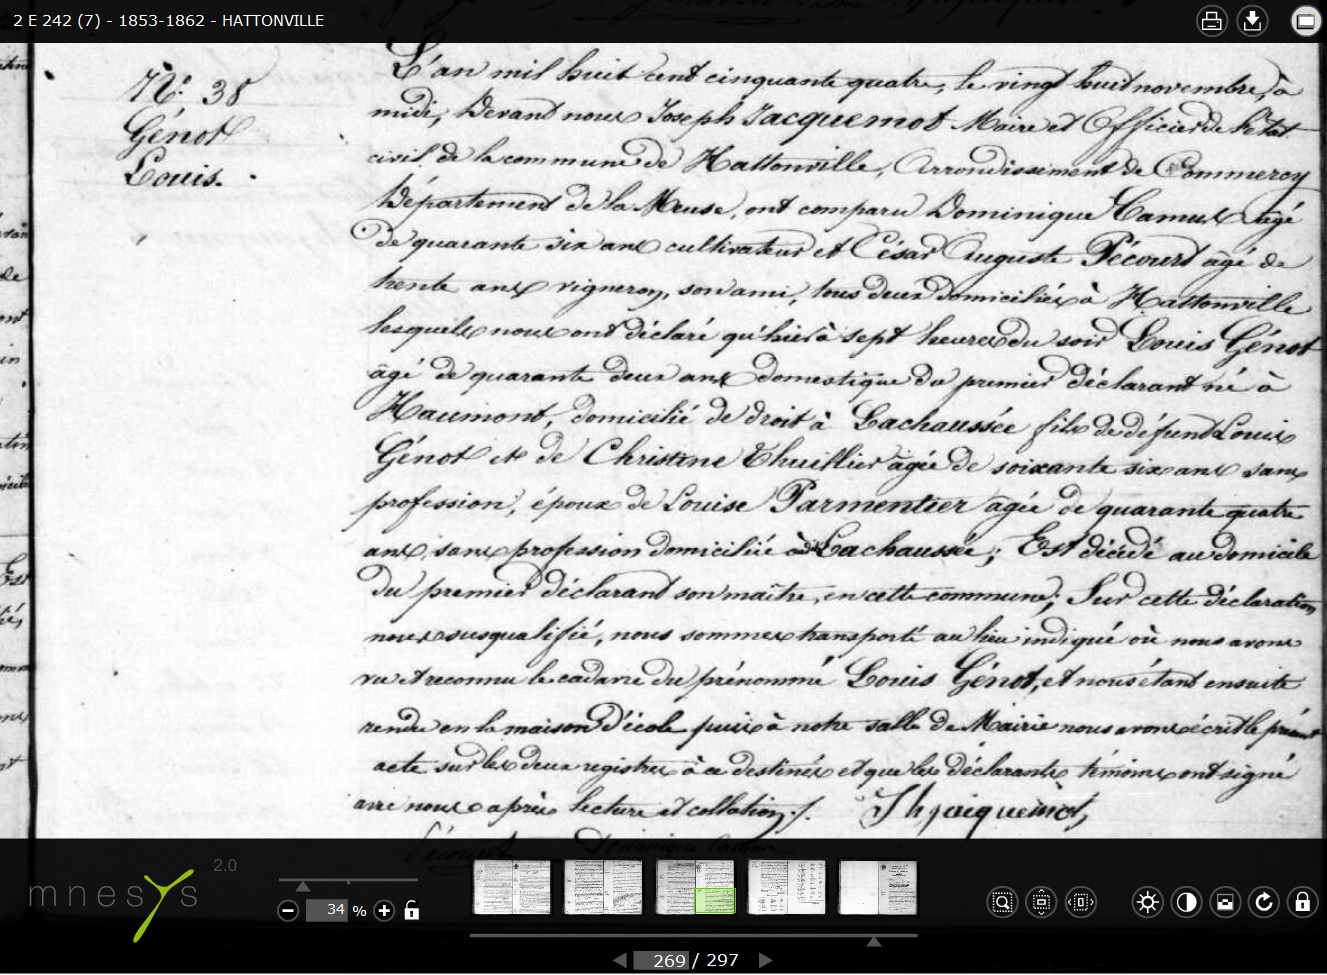 2 E 242 (7) - 1853-1862 - HATTONVILLE
N.º 38
Génot
Louis.
L'an mil huit cent cinquante quatre, le vingt huit novembre, à
midi, Devant nous Joseph Jacquemot Maire et Officier de l'état
civil de la commune de Hattonville, Arrondissement de Commercy
Département de la Meuse, ont comparu Dominique Camus agé
de quarante six ans cultivateur et César Auguste Pécourt agé de
trente ans vigneron, son ami, tous deux domiciliés à Hattonville
lesquels nous ont déclaré qu'hier à sept heures du soir Louis Génot
âgé de quarante deux ans domestique du premier déclarant né à
Haumont, domicilié de droit à Lachaussée fils de défunt Louis
Génot et de Christine Thuillier agée de soixante six ans sans
profession, époux de Louise Parmentier agée de quarante quatre
ans, sans profession domiciliée à Lachaussée; Est décédé au domicile
du premier déclarant son maître, en cette commune; Sur cette déclaration
nous susqualifié, nous sommes transporté au lieu indiqué où nous avons
vu et reconnu le cadavre du prénommé Louis Génot, et nous étant ensuite
rendu en la maison d'école puis à notre salle de Mairie nous avons écrit le présent
acte sur les deux registres à ce destinés et que les déclarants témoins ont signé
avec nous après lecture et collation./. Jh jacquemot
Pécourt Dominique Camus
mnesys 2.0
34 %
269 / 297